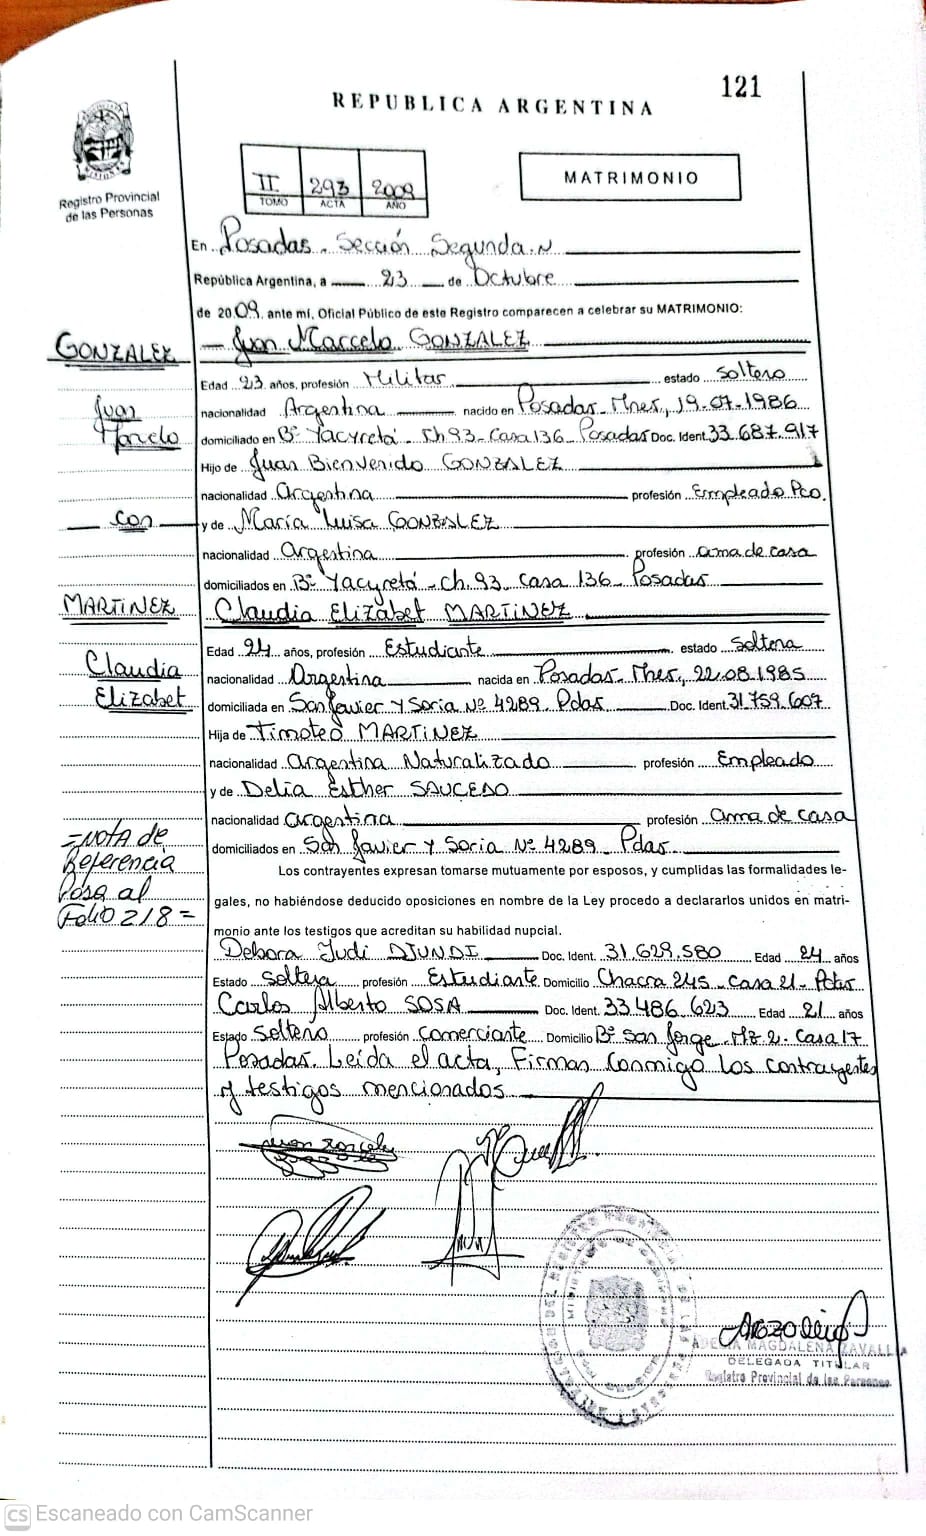 121
REPUBLICA ARGENTINA
Registro Provincial
de las Personas
II 293 2009
TOMO ACTA AÑO
MATRIMONIO
En Posadas. Sección Segunda
República Argentina, a 23 de Octubre
de 2009, ante mí, Oficial Público de este Registro comparecen a celebrar su MATRIMONIO:
GONZALEZ
Juan
Marcelo
con
MARTINEZ
Claudia
Elizabet
=NOTA de
Referencia
Pasa al
Folio 218=
Juan Marcelo GONZALEZ
Edad 23 años, profesión Militar estado soltero
nacionalidad Argentina nacido en Posadas- Mnes, 19-07-1986
domiciliado en Bº Yacyretá - Ch 93- Casa 136- Posadas Doc. Ident. 33.687.917
Hijo de Juan Bienvenido GONZALEZ
nacionalidad Argentina profesión Empleado Pco.
y de María Luisa GONZALEZ
nacionalidad Argentina profesión ama de casa
domiciliados en Bº Yacyretá - Ch. 93 Casa 136- Posadas
Claudia Elizabet MARTINEZ
Edad 24 años, profesión Estudiante estado Soltera
nacionalidad Argentina nacida en Posadas- Mnes, 22.08.1985
domiciliada en San Javier y Soria Nº 4289 Pdas Doc. Ident. 31.759.607
Hija de Timoteo MARTINEZ
nacionalidad Argentina Naturalizado profesión Empleado
y de Delia Esther SAUCEDO
nacionalidad argentina profesión ama de casa
domiciliados en San Javier y Soria Nº 4289 Pdas
Los contrayentes expresan tomarse mutuamente por esposos, y cumplidas las formalidades le-
gales, no habiéndose deducido oposiciones en nombre de la Ley procedo a declararlos unidos en matri-
monio ante los testigos que acreditan su habilidad nupcial.
Debora Judi DJUNDI Doc. Ident. 31.629.580 Edad 24 años
Estado soltera profesión Estudiante Domicilio Chacra 245- Casa 21- Pdas
Carlos Alberto SOSA Doc. Ident. 33.486.623 Edad 21 años
Estado Soltero profesión comerciante Domicilio Bº San Jorge Mz 2- Casa 17
Posadas. Leída el acta, Firman conmigo los contrayentes
y testigos mencionados
MAGDALENA ZAVALLA
DELEGADA TITULAR
Registro Provincial de las Personas
CS Escaneado con CamScanner